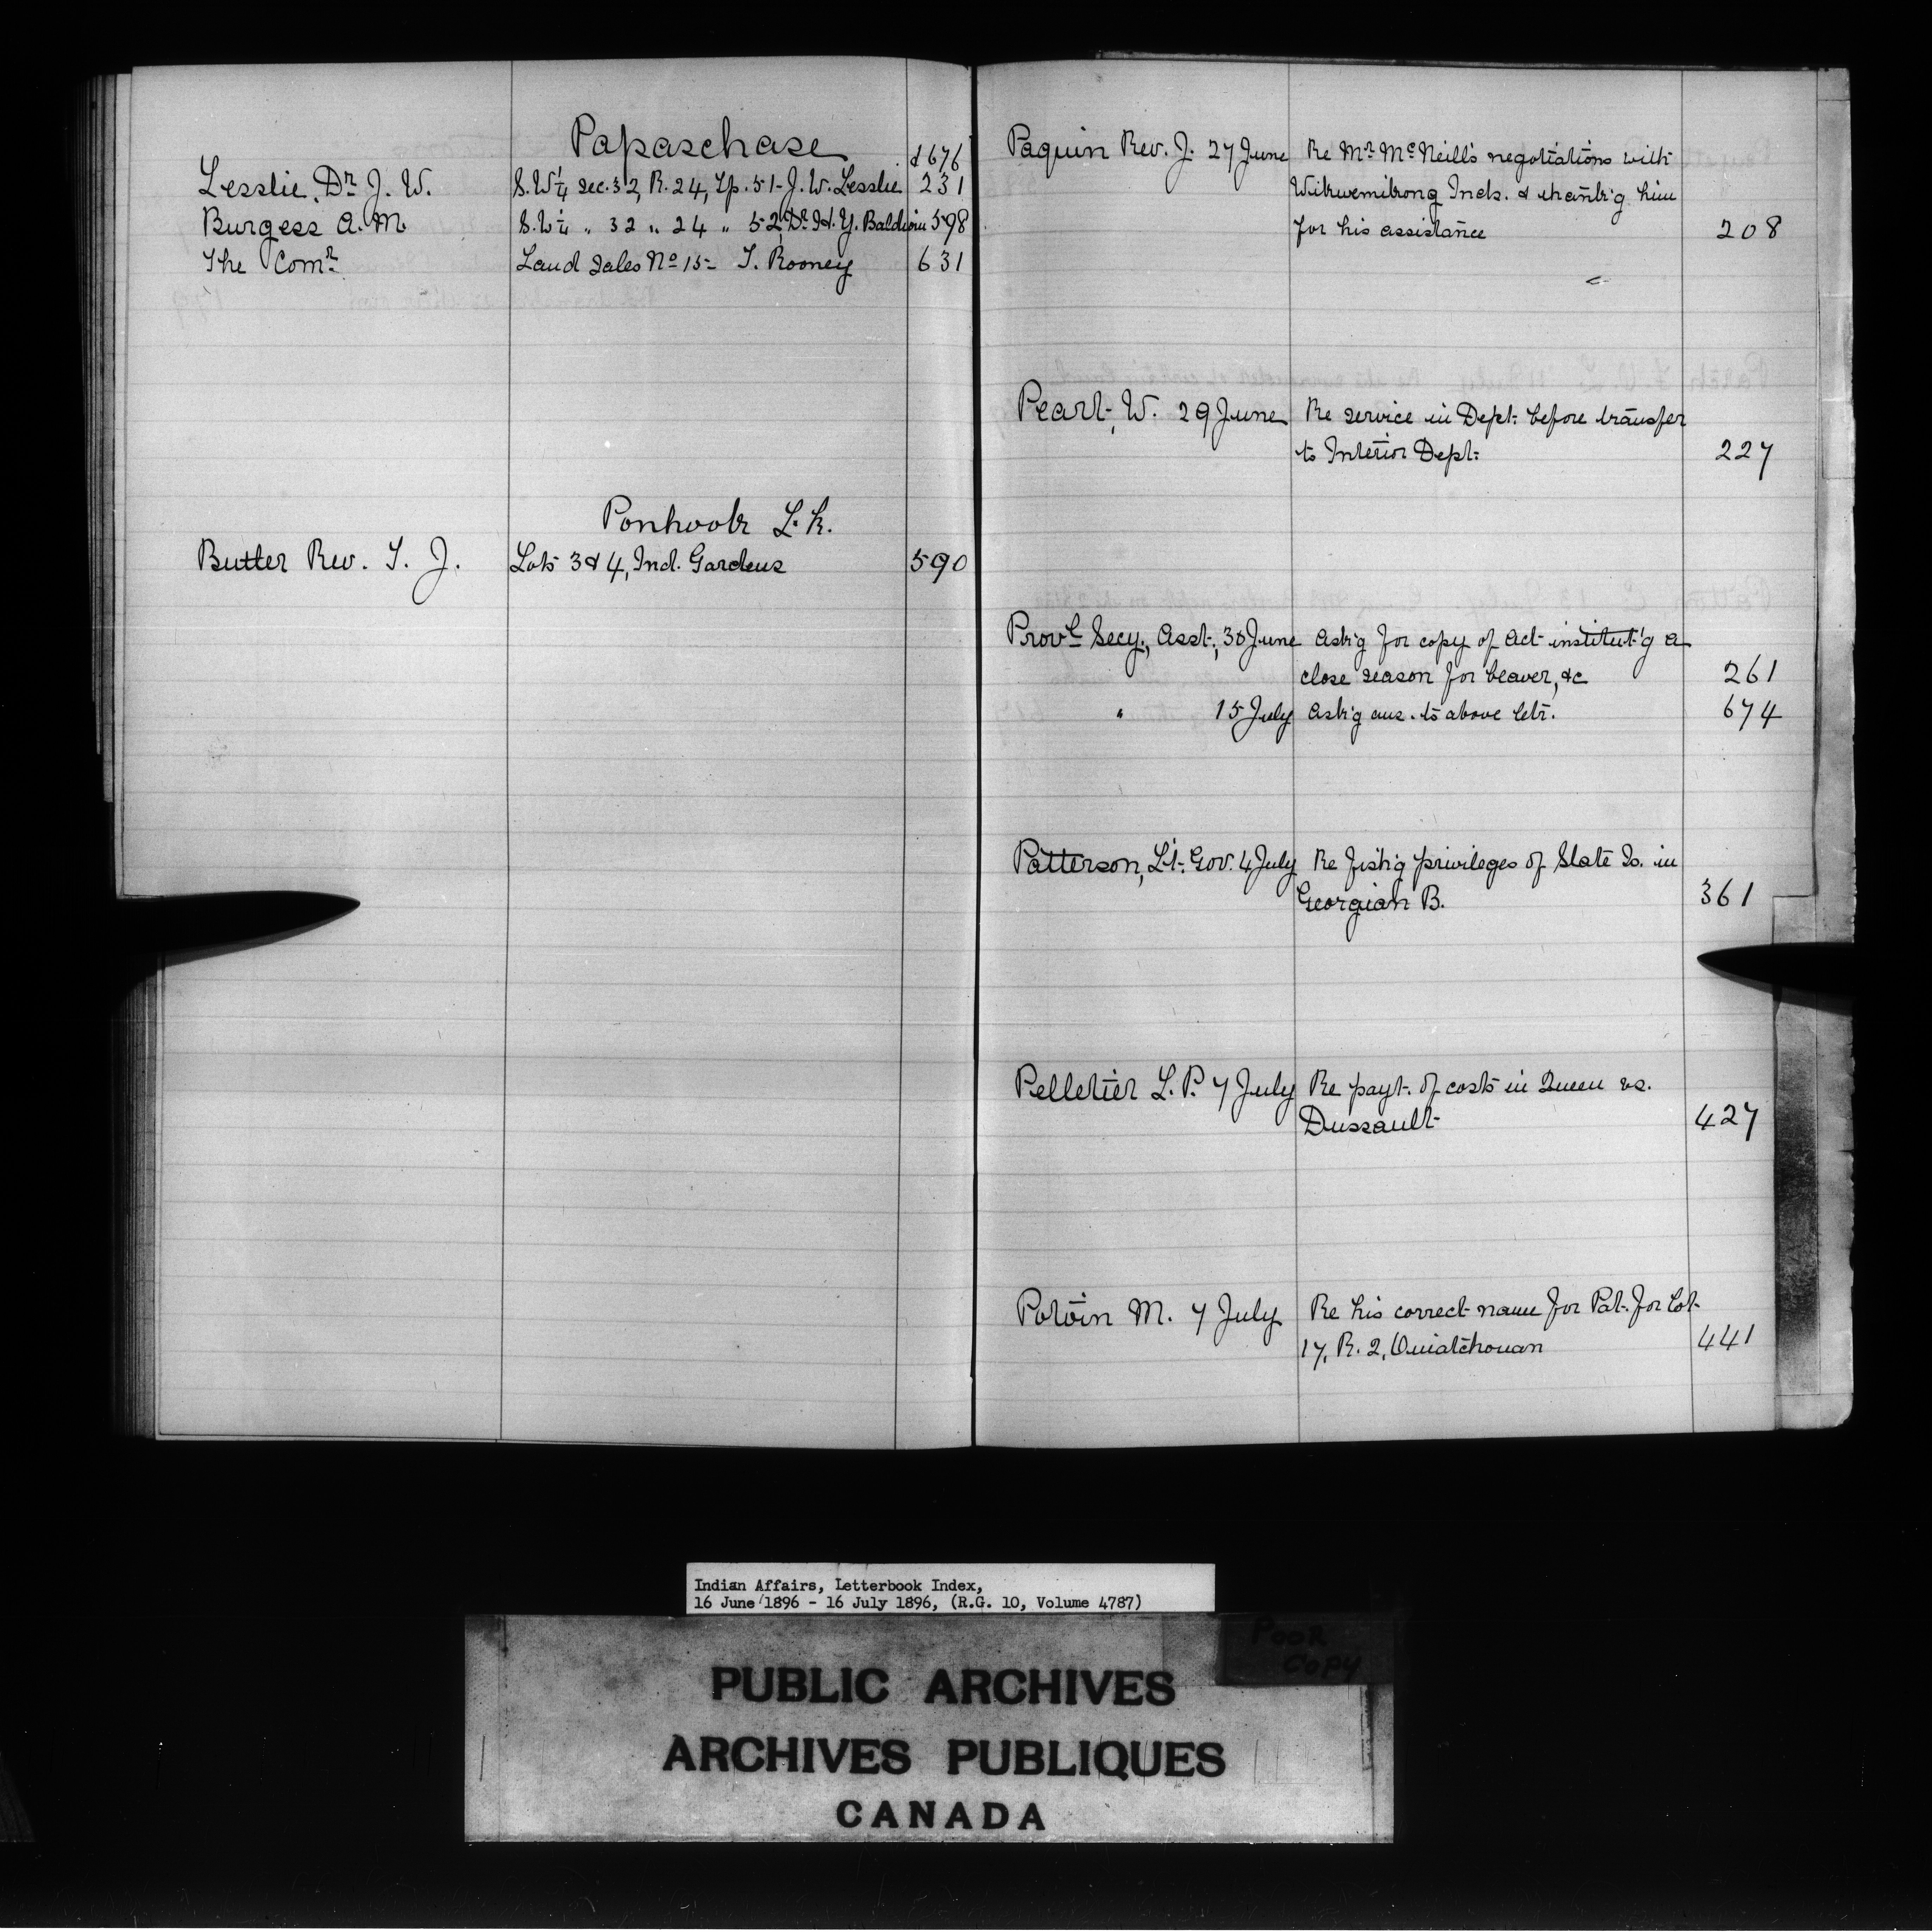 Papaschase
& 676
Lesslie, Dr J. W. S.W¼ Sec. 32, R. 24, Tp. 51 - J. W. Lesslie 231
Burgess A. M. S.W¼ " 32 " 24 " 52, Dr. H. Y. Baldwin 598
The Comr. Land Sales No 15 - T. Rooney 631
Ponhook L. k.
Butler Rev. T. J. Lots 3 & 4, Ind. Gardens 590
Paquin Rev. J. 27 June Re Mr. McNeill's negotiations with
Wikwemikong Inds. & thank'g him
for his assistance 208
Peart, W. 29 June Re service in Dept. before transfer
to Interior Dept. 227
Provl Secy., Asst., 30 June Ask'g for copy of Act institut'g a
close season for beaver, &c 261
" 15 July Ask'g ans. to above letr. 674
Patterson, Lt. Gov. 4 July Re fish'g privileges of Slate Is. in
Georgian B. 361
Pelletier L. P. 7 July Re payt. of costs in Queen vs.
Dussault 427
Potvin M. 7 July Re his correct name for Pat. for Lot
17, R. 2, Ouiatchouan 441
Indian Affairs, Letterbook Index,
16 June 1896 - 16 July 1896, (R.G. 10, Volume 4787)
POOR
COPY
PUBLIC ARCHIVES
ARCHIVES PUBLIQUES
CANADA